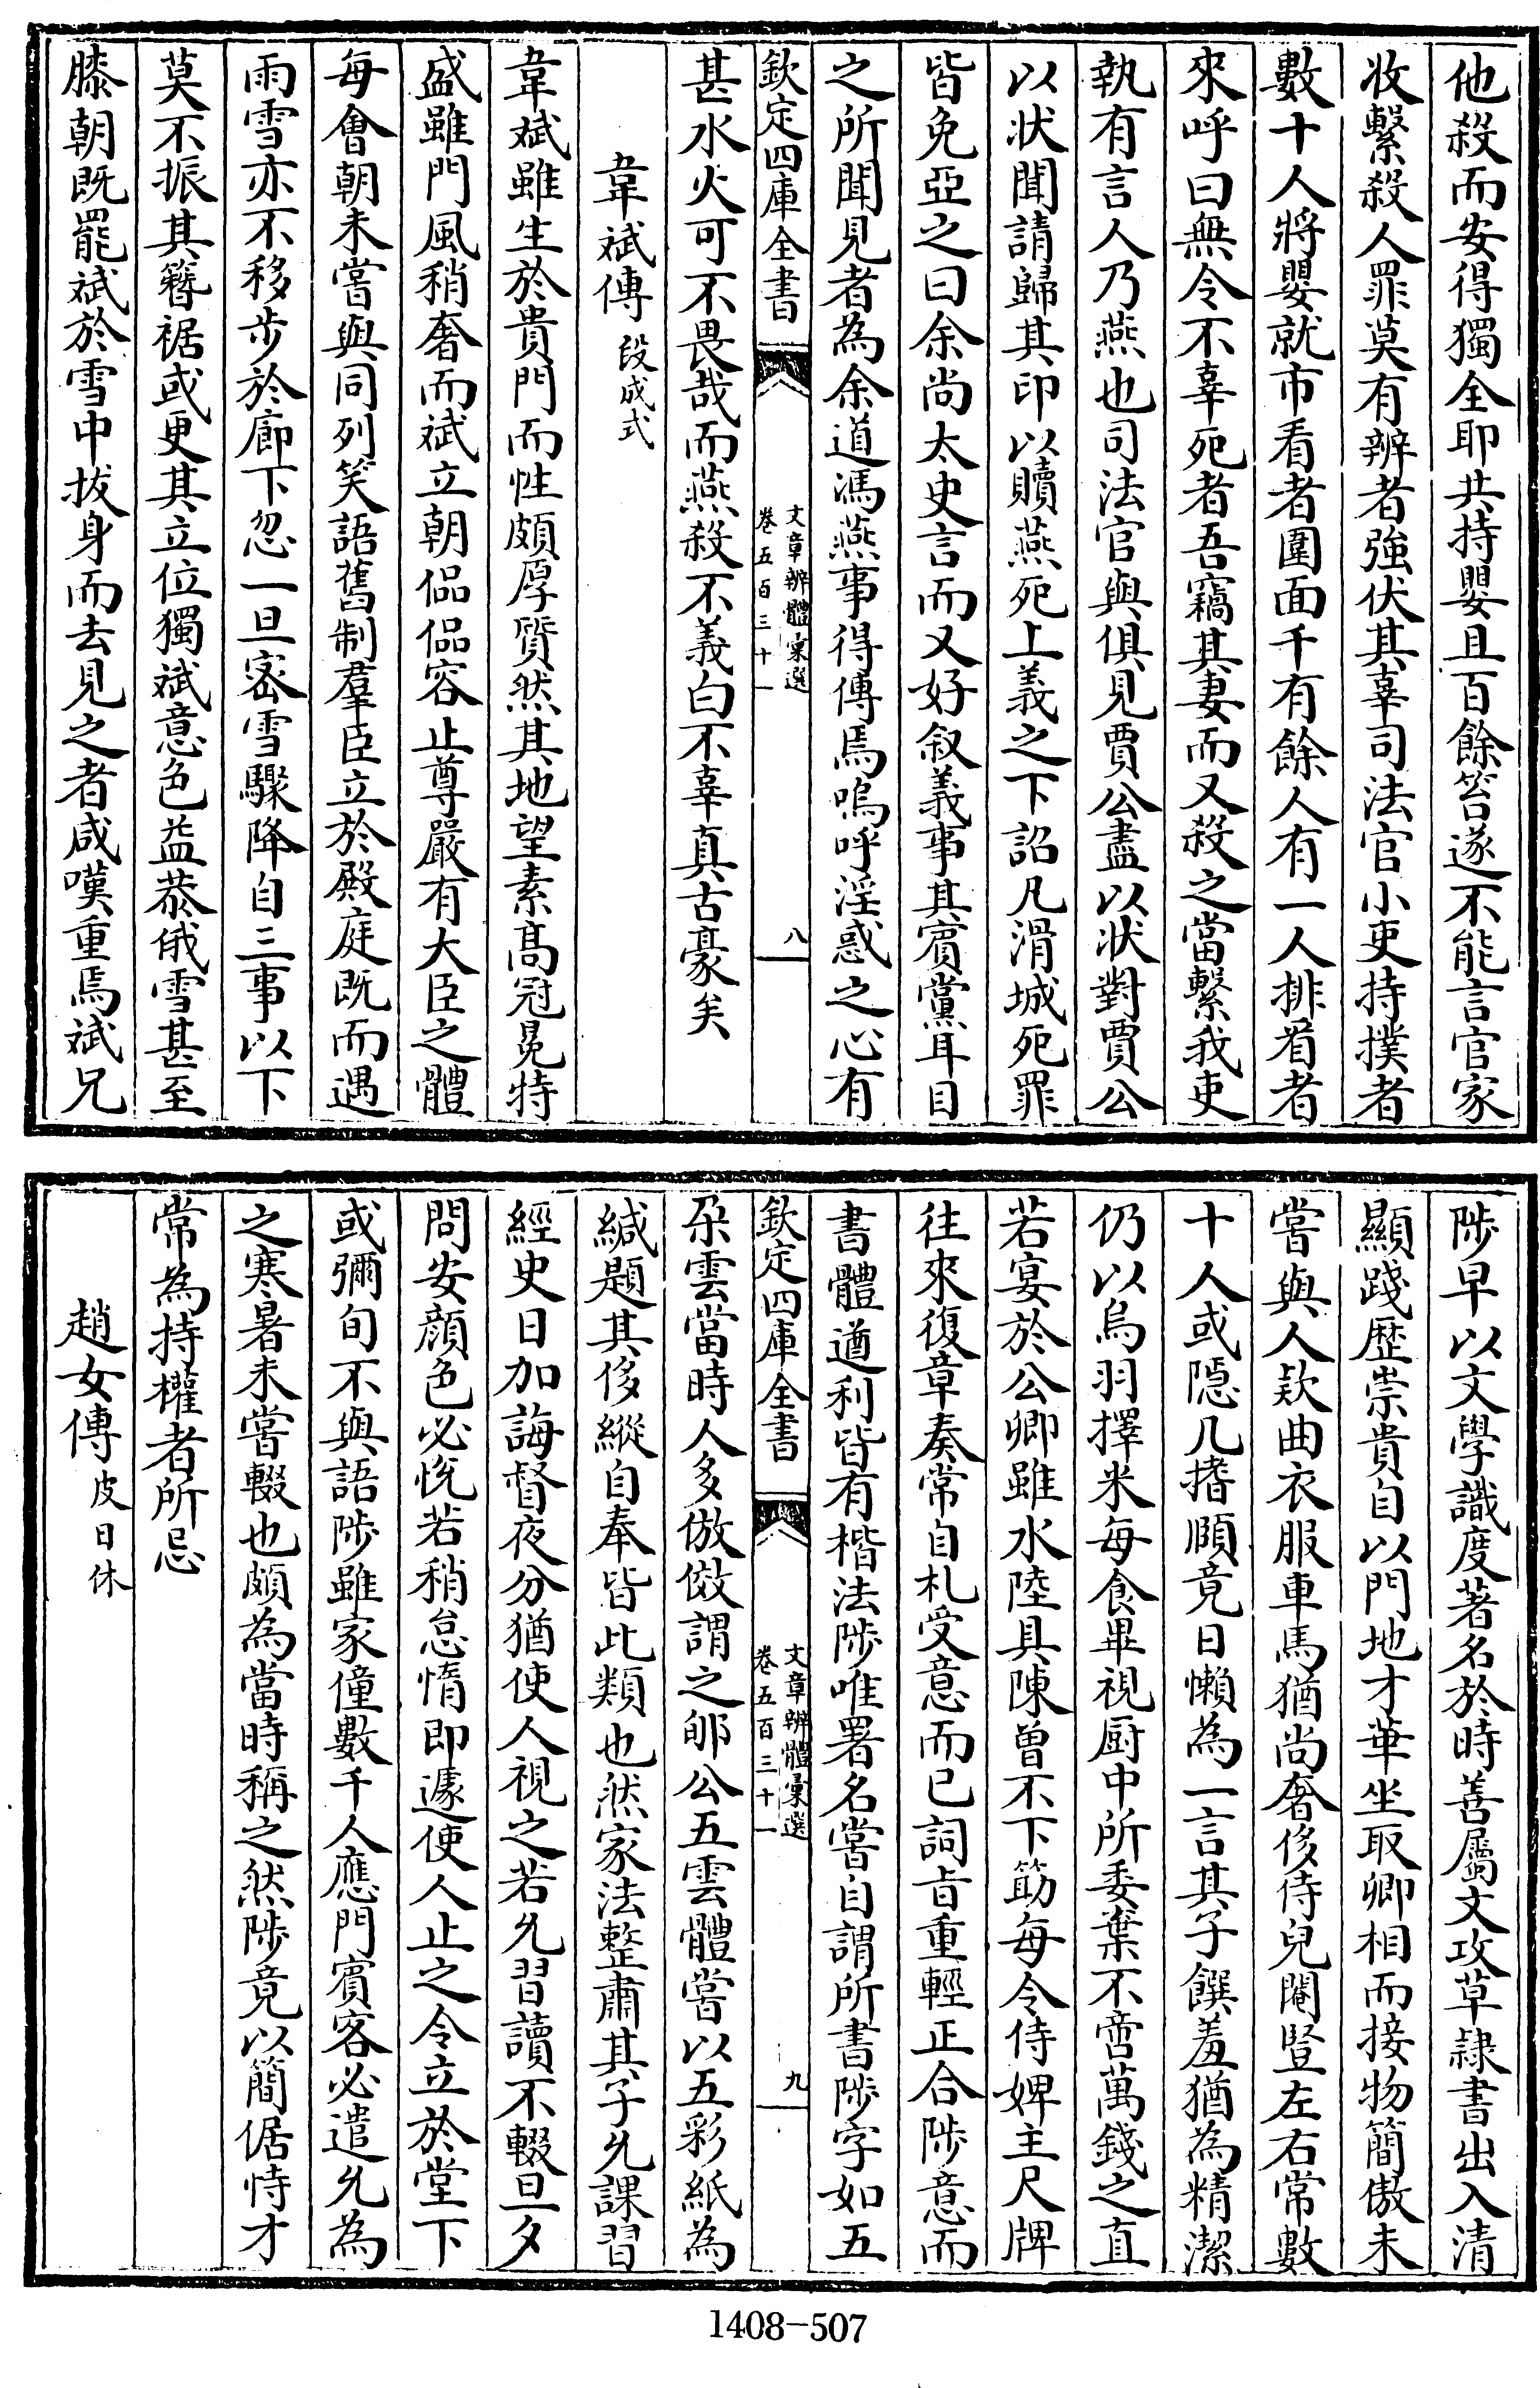 他殺而安得獨全耶共持嬰且百餘笞遂不能言官家
收繫殺人罪莫有辨者強伏其辜司法官小吏持撲者
數十人將嬰就市看者圍面千有餘人有一人排看者
來呼曰無令不辜死者吾竊其妻而又殺之當繫我吏
執有言人乃燕也司法官與俱見賈公盡以狀對賈公
以狀聞請歸其印以贖燕死上義之下詔凡滑城死罪
皆免亞之曰余尚太史言而又好叙義事其賓黨耳目
之所聞見者為余道馮燕事得傳焉嗚呼淫惑之心有
欽定四庫全書
文章辨體彙選
卷五百三十一
八
甚水火可不畏哉而燕殺不義白不辜真古豪矣
韋斌傳 段成式
韋斌雖生於貴門而性頗厚質然其地望素高冠冕特
盛雖門風稍奢而斌立朝偘偘容止尊嚴有大臣之體
每會朝未嘗與同列笑語舊制羣臣立於殿庭既而遇
雨雪亦不移步於廊下忽一旦密雪驟降自三事以下
莫不振其簪裾或更其立位獨斌意色益恭俄雪甚至
膝朝既罷斌於雪中拔身而去見之者咸嘆重焉斌兄
陟早以文學識度著名於時善屬文攻草隸書出入清
顯踐歷崇貴自以門地才華坐取卿相而接物簡傲未
嘗與人欵曲衣服車馬猶尚奢侈侍兒閹豎左右常數
十人或隱几搘頤竟日懶為一言其子饌羞猶為精潔
仍以鳥羽擇米每食畢視厨中所委棄不啻萬錢之直
若宴於公卿雖水陸具陳曾不下筯每令侍婢主尺牘
往來復章奏常自札受意而已詞旨重輕正合陟意而
書體遒利皆有楷法陟唯署名嘗自謂所書陟字如五
欽定四庫全書
文章辨體彙選
卷五百三十一
九
朶雲當時人多倣傚謂之郇公五雲體嘗以五彩紙為
緘題其侈縱自奉皆此類也然家法整肅其子允課習
經史日加誨督夜分猶使人視之若允習讀不輟旦夕
問安顔色必悅若稍怠惰即遽使人止之令立於堂下
或彌旬不與語陟雖家僮數千人應門賓客必遣允為
之寒暑未嘗輟也頗為當時稱之然陟竟以簡倨恃才
常為持權者所忌
趙女傳 皮日休
1408-507